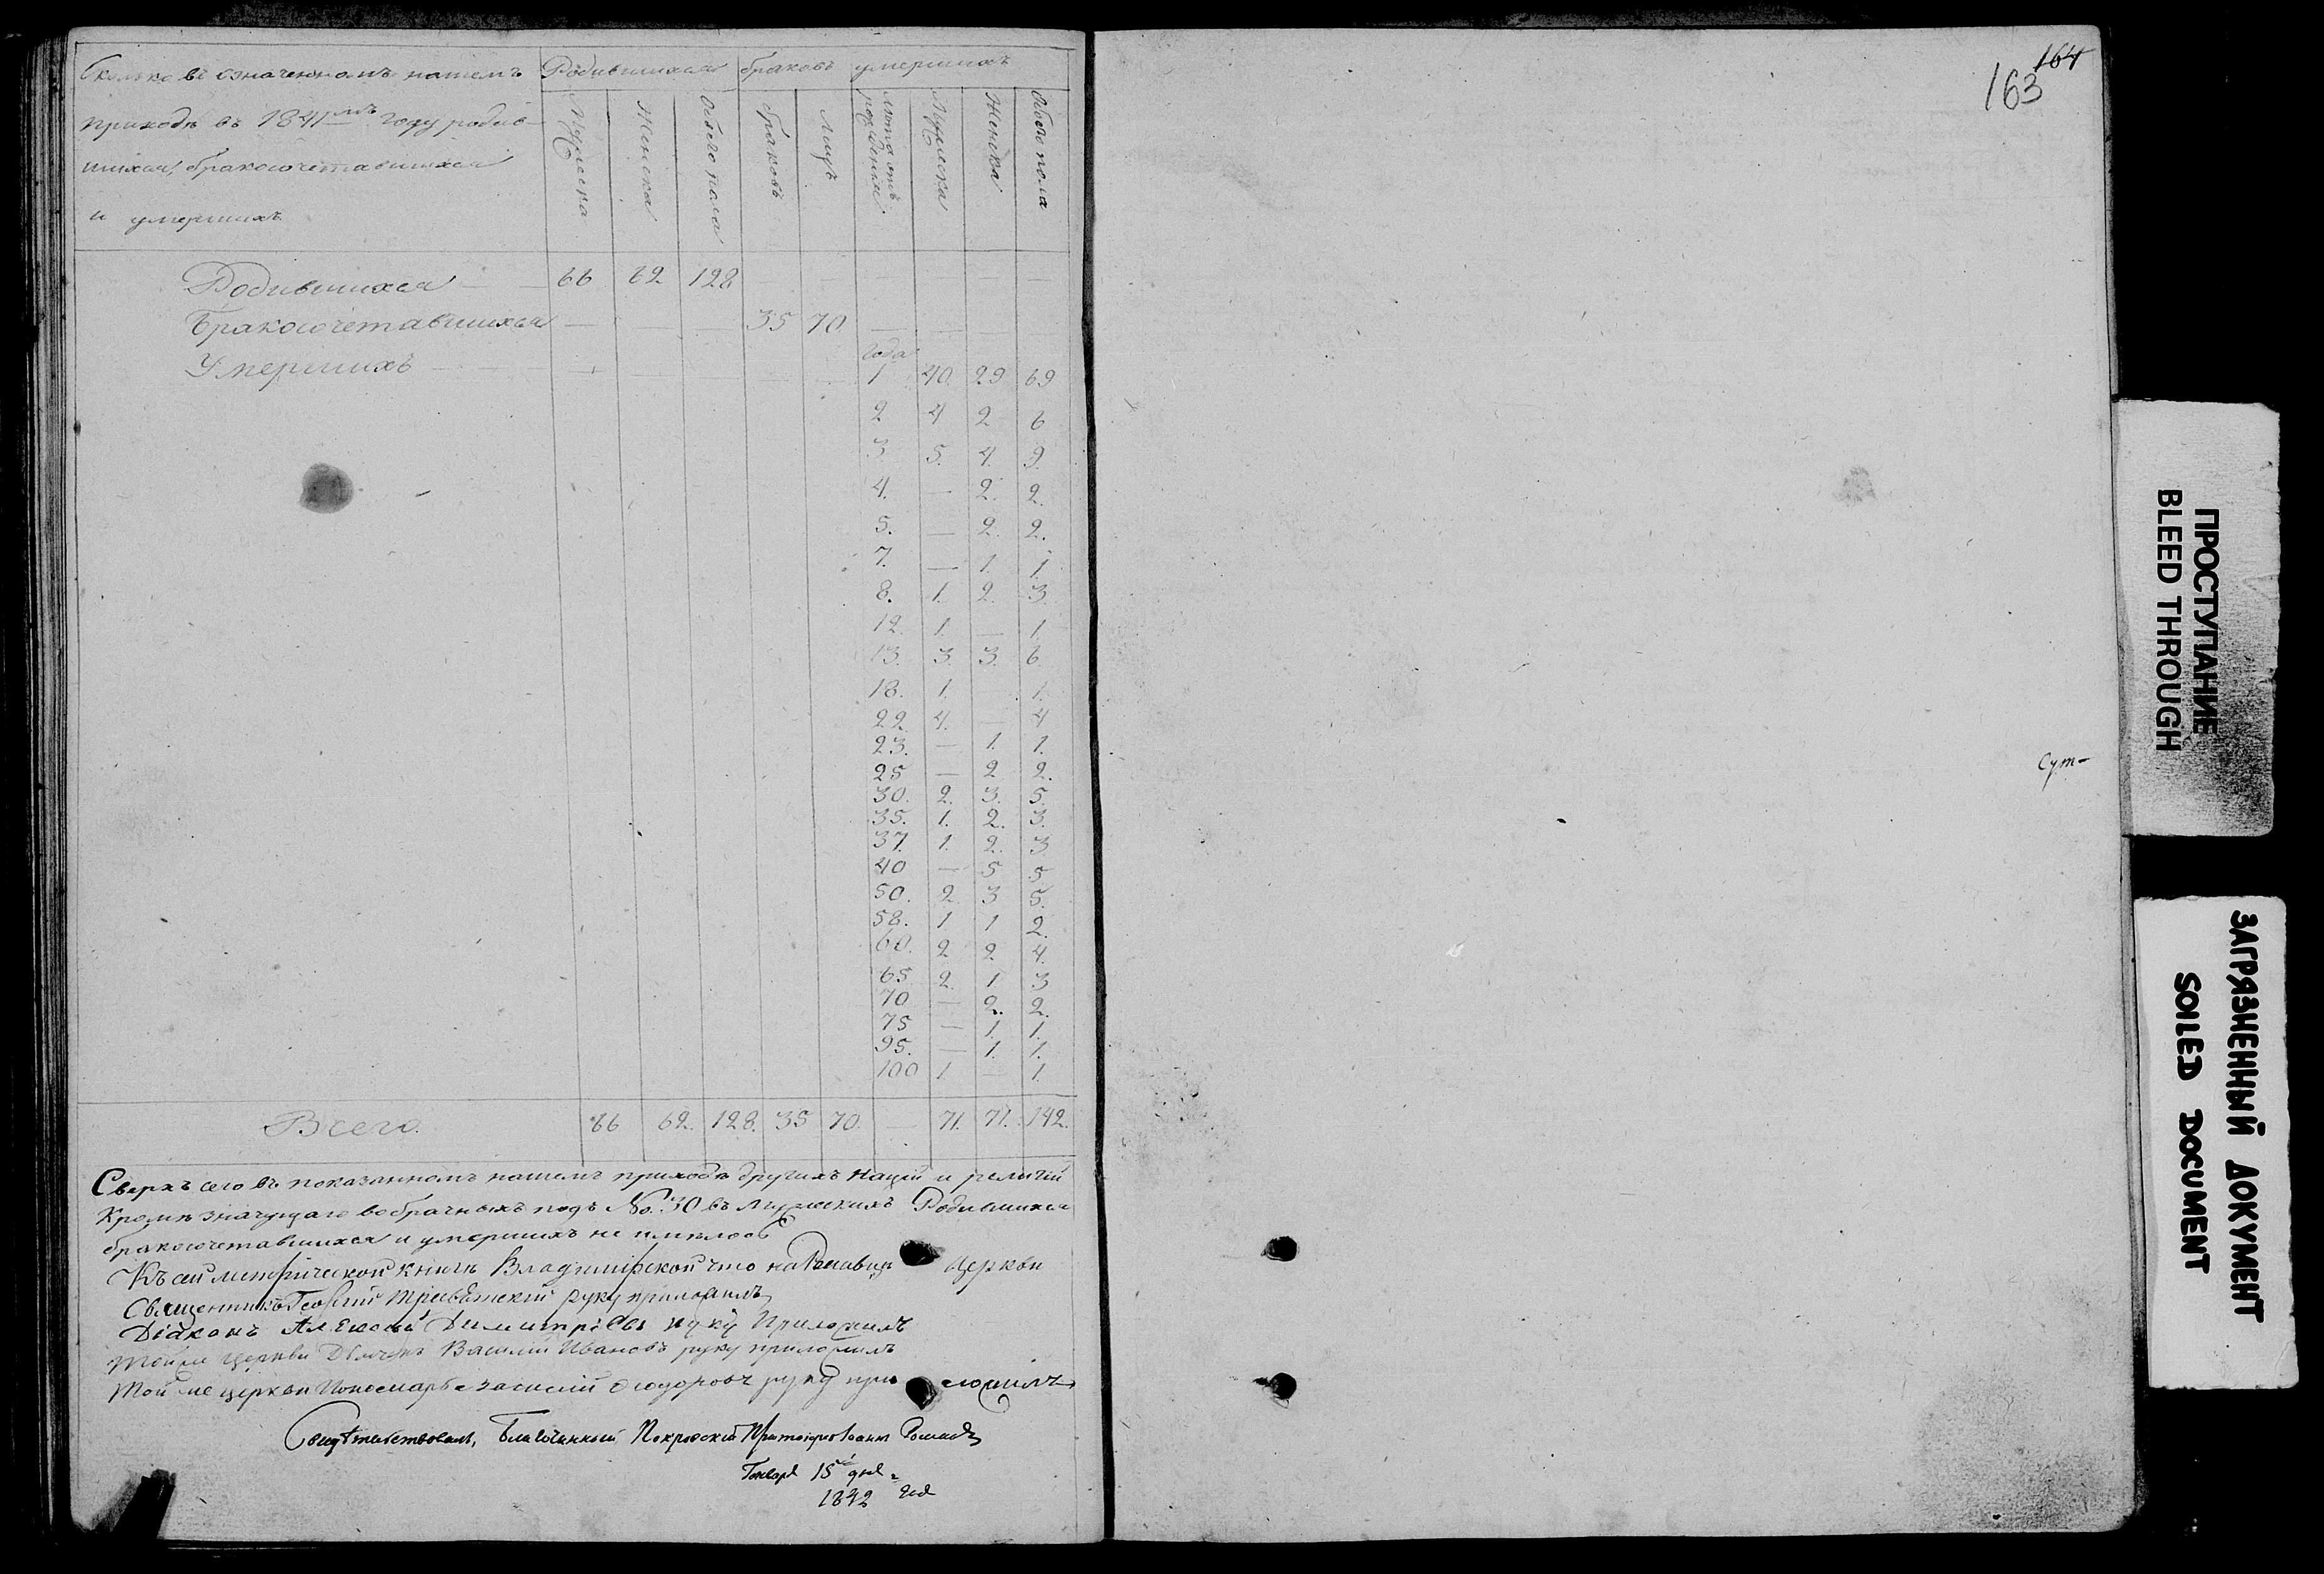 Сколько въ означенномъ нашемъ
приходѣ въ 1841мъ году родив-
шихся, бракосочетавшихся
и умершихъ
Родившихся браковъ умершихъ
Мужеска Женска Обоего пола браковъ лицъ Лета отъ рожденiя Мужеска Женска Обоего пола
Родившихся — 66 62 128
Бракосочетавшихся — 35 70 — —
Умершихъ — года
1 40. 29 69
2 4 2 6
3 5. 4. 9.
4. — 2. 2.
5. — 2. 2.
7. — 1. 1.
8. 1. 2. 3.
12. 1. — 1.
13. 3. 3. 6
18. 1. — 1.
22 4. — 4
23. — 1. 1.
25 — 2 2.
30. 2. 3. 5.
35. 1. 2. 3.
37. 1. 2. 3
40 — 5 5
50. 2 3 5.
58. 1 1 2.
60. 2 2 4.
65 2. 1 3
70 — 2. 2.
75 — 1. 1.
95. — 1. 1.
100 1 — 1.
Всего. 66 62. 128. 35 70. — 71. 71. 142.
Сверхъ сего въ показанномъ нашемъ приходѣ другихъ нацiй и религiй
кромѣ значущаго въ брачныхъ подъ No. 30 въ мужескихъ Родившихся
бракосочетавшихся и умершихъ не имѣлось
Къ сей метрической книгѣ Владимiрской что на церкви
Священникъ Георгiй руку приложилъ
Дiаконъ Алексѣй Димитрiевъ руку Приложилъ
Тойже церкви Дьячекъ Василiй Ивановъ руку приложилъ
Той же церкви Пономарь Ѳеодоровъ руку приложилъ
Свидѣтельствовалъ, Благочинный Покровскiй Протоiерей Iоаннъ
Генваря 15 дня
1842 года
164
163
Сут-
ПРОСТУПАНИЕ
BLEED THROUGH
ЗАГРЯЗНЕННЫЙ ДОКУМЕНТ
SOILED DOCUMENT